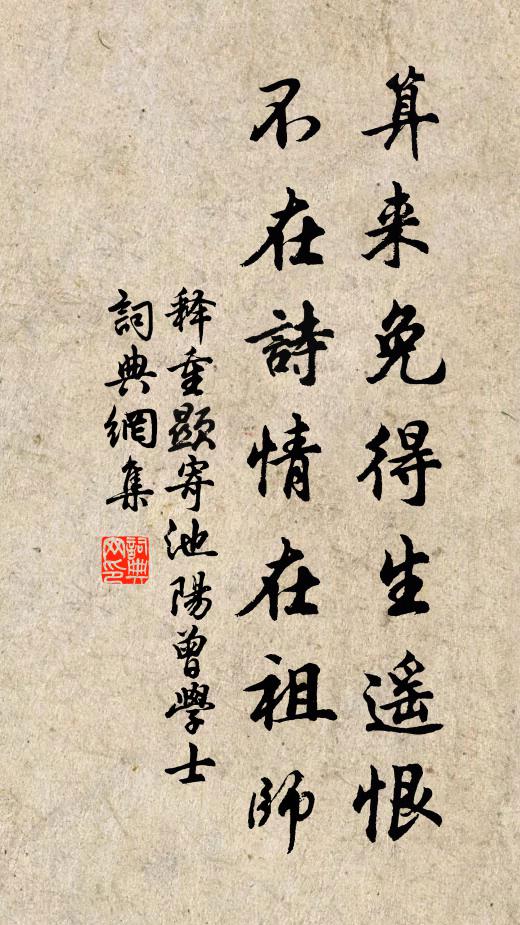 算来免得生遥恨
不在詩情在祖師
释重顯寄池陽曾學士
詞典網集
詞典網印